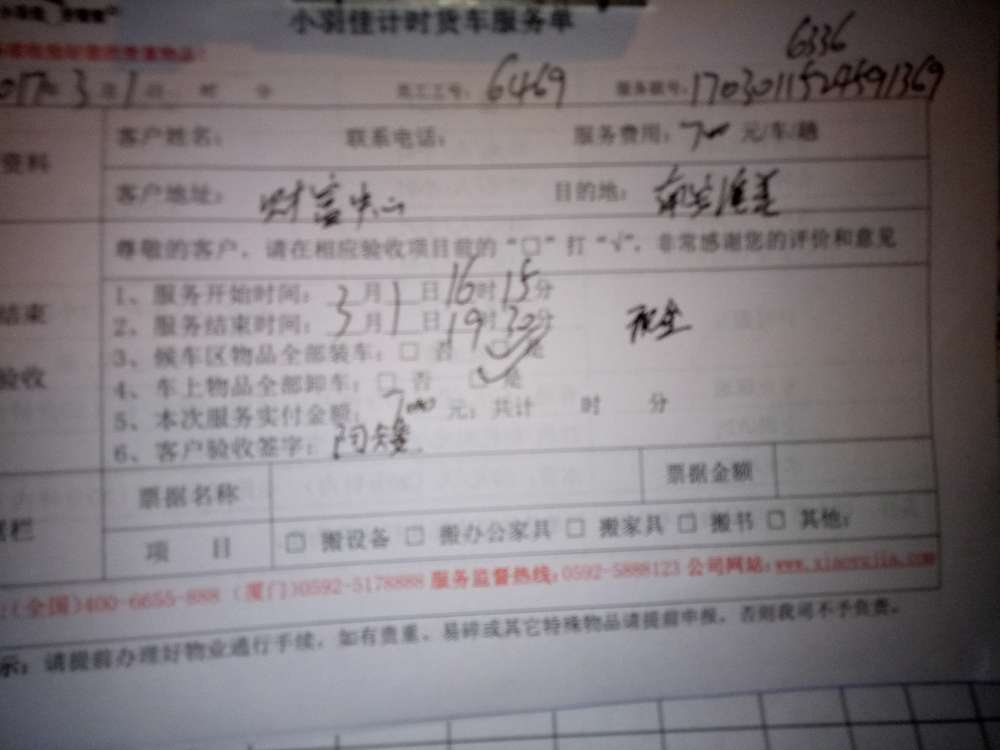 小羽佳计时货车服务单
6336
2017年3月1日 时 分 员工工号: 6469 服务联号: 1703011524591369
资料
客户姓名: 联系电话: 服务费用: 700 元/车/趟
客户地址: 财富中心 目的地:
尊敬的客户,请在相应验收项目前的“□”打“√”,非常感谢您的评价和意见
1、服务开始时间: 3月1日16时15分
结束
2、服务结束时间: 3月1日19时30分 现金
3、候车区物品全部装车: □ 否 □ 是
验收
4、车上物品全部卸车: □ 否 □ 是
5、本次服务实付金额: 700 元; 共计 时 分
6、客户验收签字:
票据名称 票据金额
栏
项 目 □ 搬设备 □ 搬办公家具 □ 搬家具 □ 搬书 □ 其他:
:(全国)400-6655-888 (厦门)0592-5178888 服务监督热线:0592-5888123 公司网站:www.xiaoyujia.com
示: 请提前办理好物业通行手续, 如有贵重、易碎或其它特殊物品请提前申报, 否则我司不予负责。